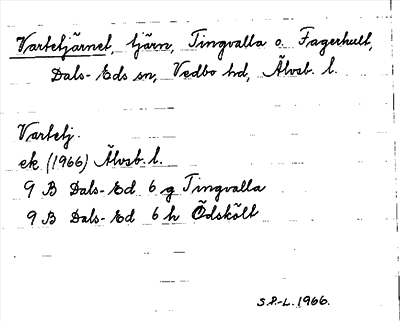 Vartetjärnet, tjärn, Tingvalla o. Fagerhult,
Dals-Eds sn, Vedbo hd, Älvsb. l.
Vartetj.
ek (1966) Älvsb. l.
9 B Dals-Ed 6 g Tingvalla
9 B Dals-Ed 6 h Ödskölt
S.P.-L. 1966.